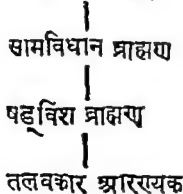 सामविधान ब्राह्मण
षड्विंश ब्राह्मण
तलवकार आरण्यक